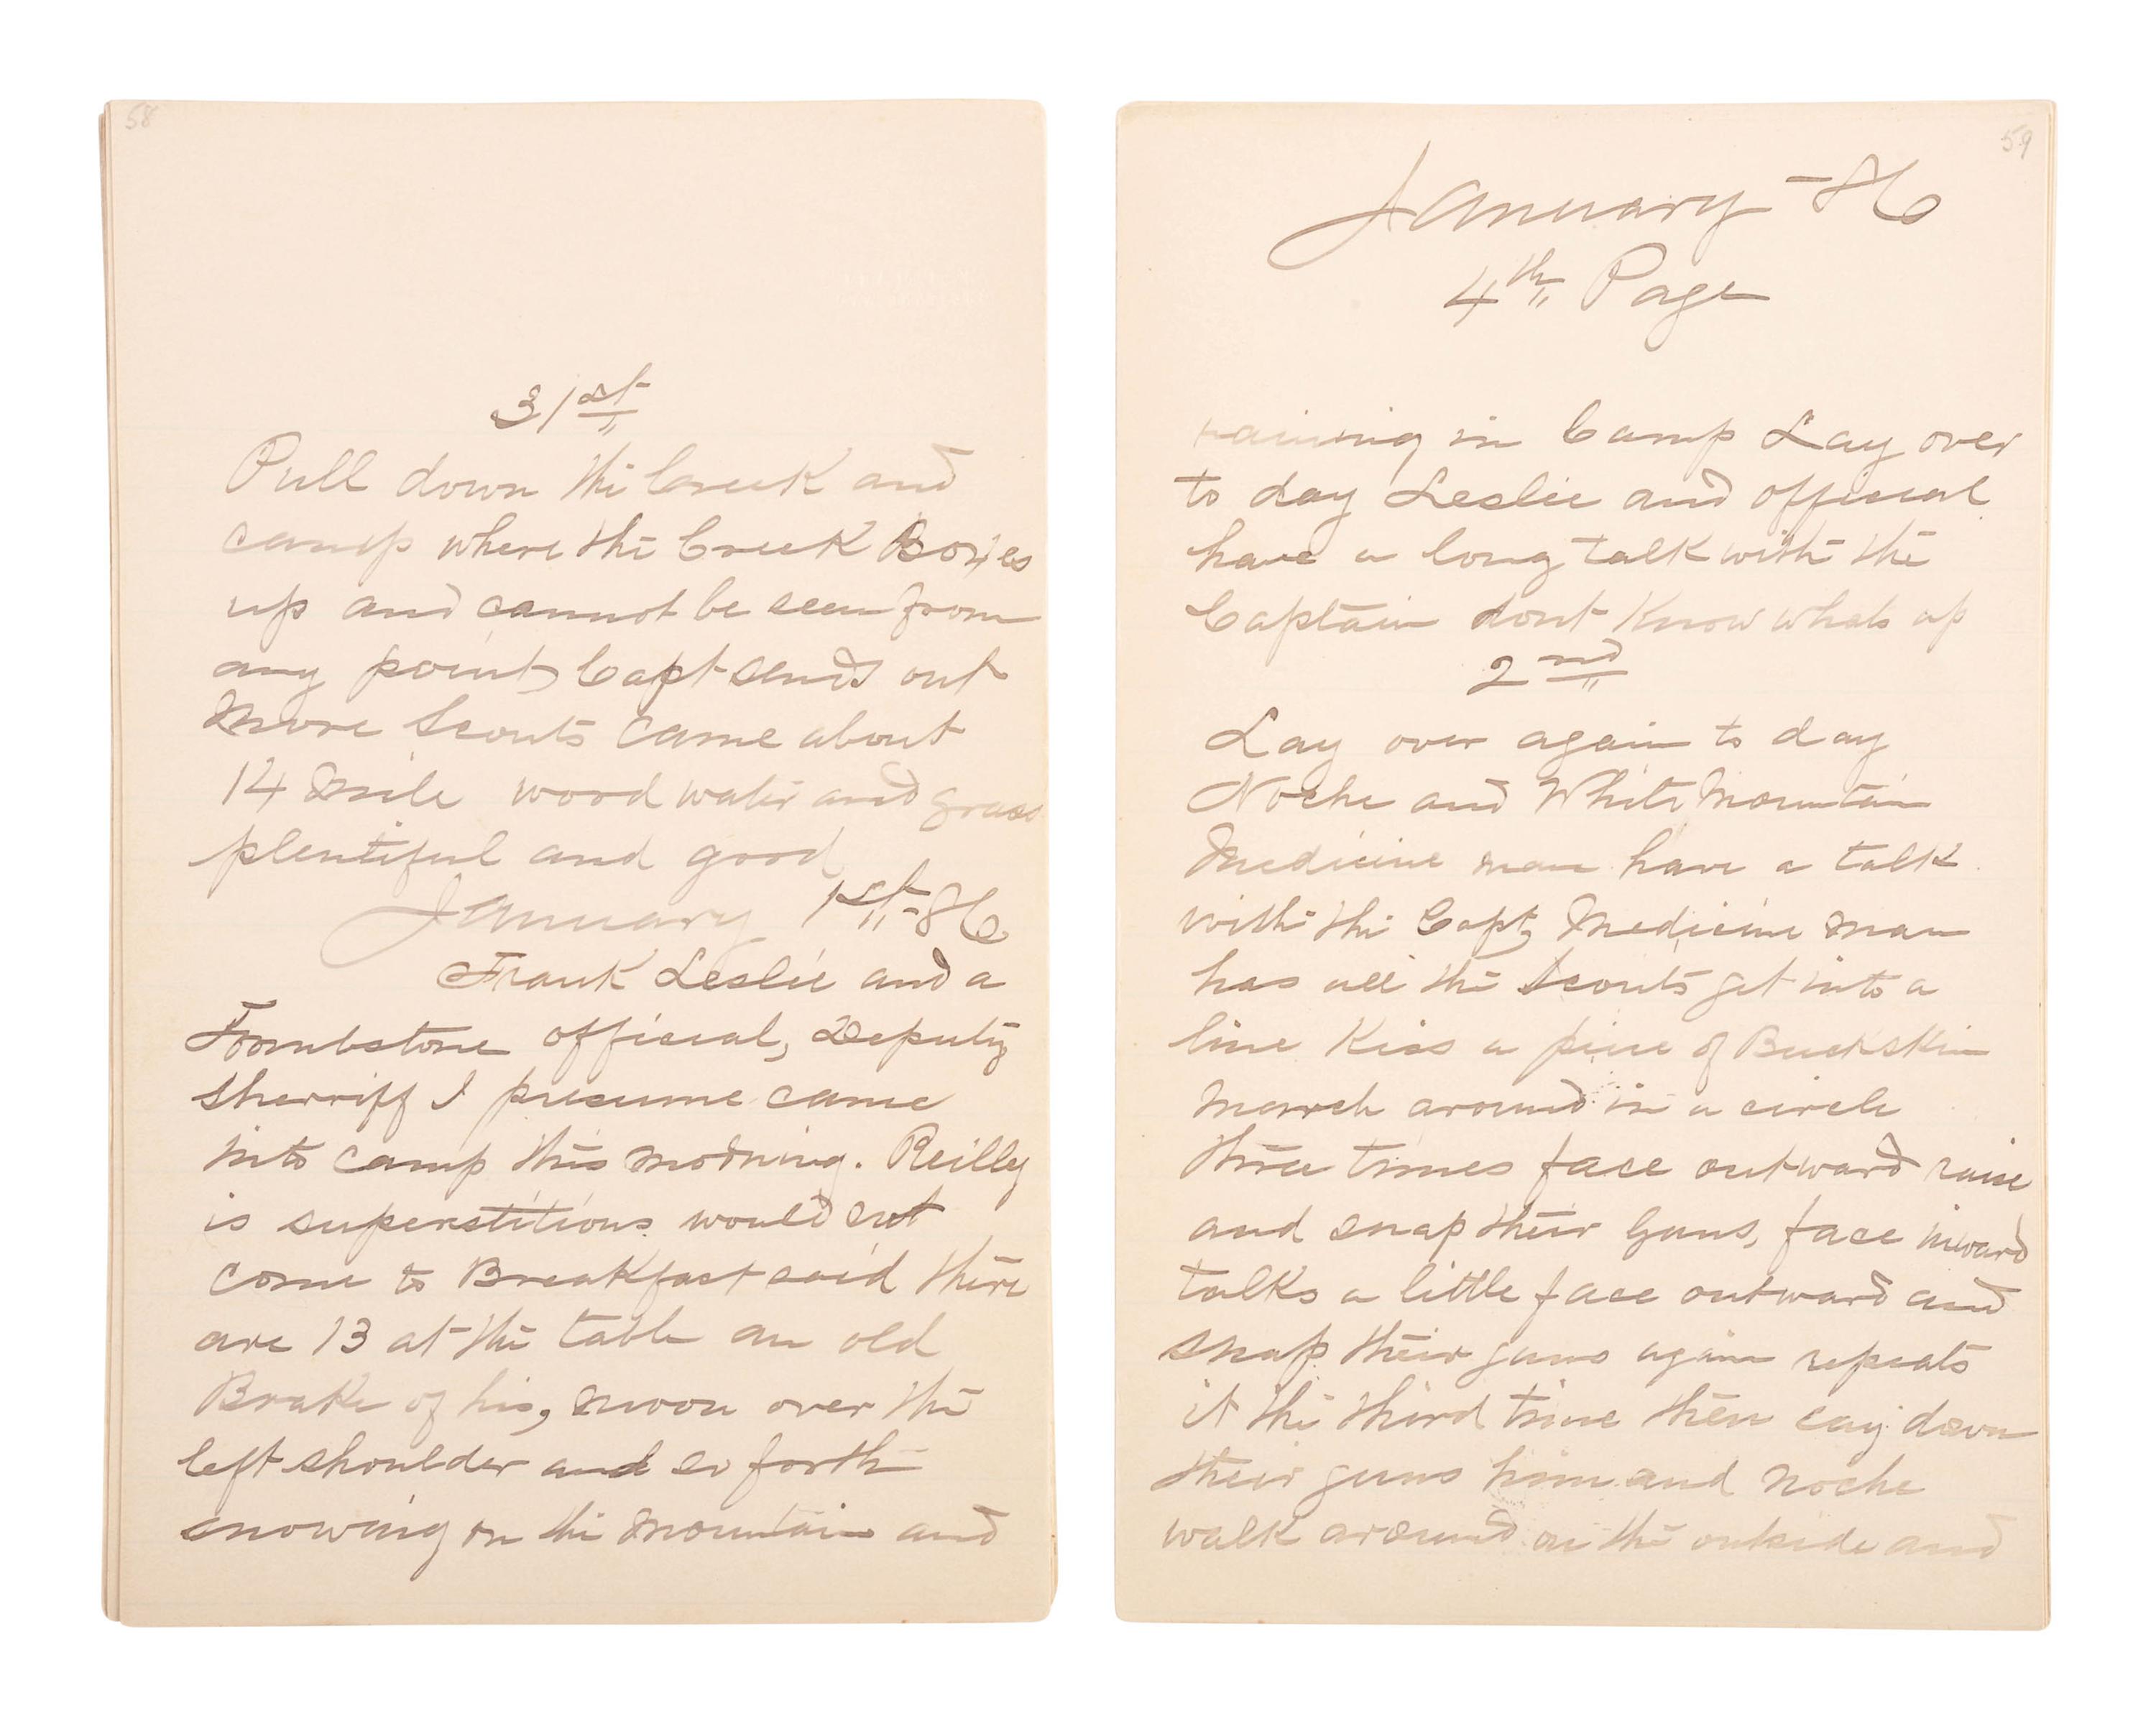 58
31st
Pull down the Creek and
camp where the Creek Boxes
up and cannot be seen from
any point, Capt sends out
more Scouts came about
14 mile wood water and grass
plentiful and good
January 1st-86
Frank Leslie and a
Tombstone official, Deputy
Sherriff I presume came
into camp this morning. Reilly
is superstitious would not
come to Breakfast said there
are 13 at the table an old
Brake of his, moon over the
left shoulder and so forth
snowing on the mountain and
59
January -86
4th Page
raining in Camp Lay over
to day Leslie and official
have a long talk with the
Captain dont Know whats up
2nd
Lay over again to day
Noche and White Mountain
Medicine man have a talk
with the Capt, Medicine man
has all the Scouts get into a
line Kiss a piece of Buckskin
March around in a circle
three times face outward raise
and snap their Guns, face inward
talks a little face outward and
snap their guns again repeats
it the third time then lay down
their guns him and Noche
walk around on the outside and